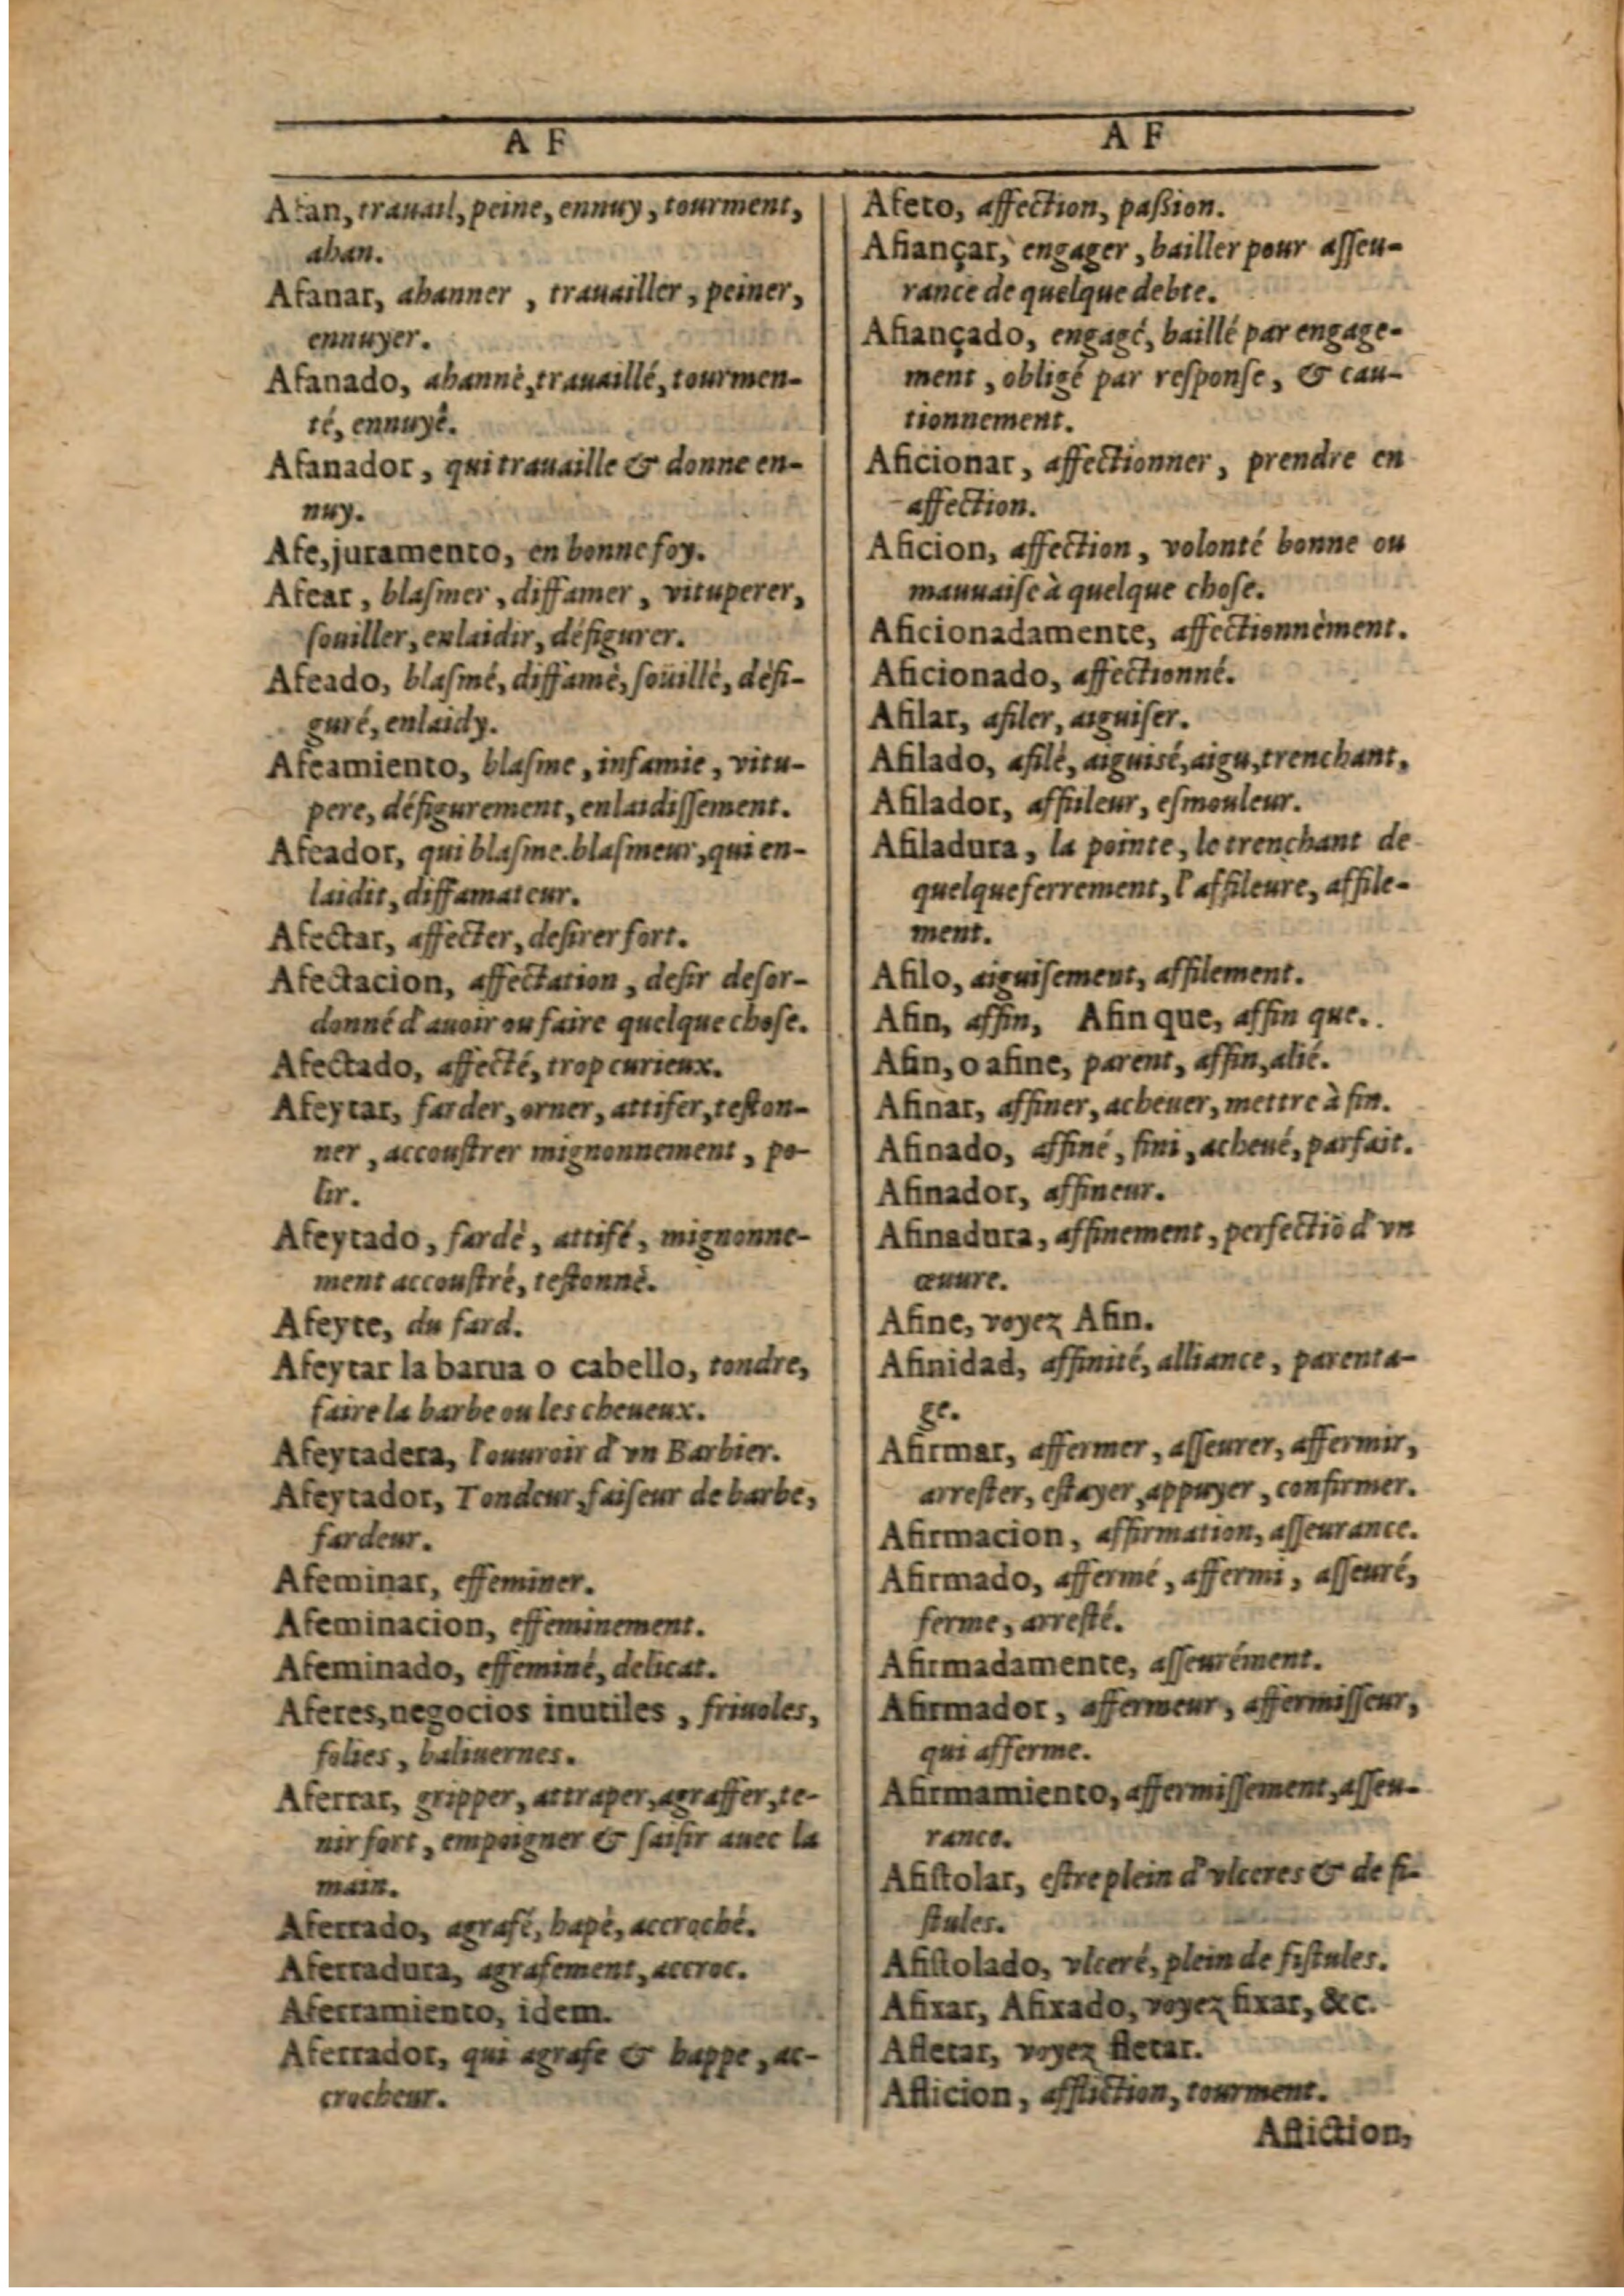 A F
Afan, trauail, peine, ennuy, tourment,
ahan.
Afanar, ahanner, trauailler, peiner,
ennuyer.
Afanado, ahanné, trauaillé, tourmen-
té, ennuyé.
Afanador, qui trauaille & donne en-
nuy.
Afe, juramento, en bonne foy.
Afear, blaſmer, diffamer, vituperer,
ſouiller, enlaidir, défigurer.
Afeado, blaſmé, diffamé, ſoüillé, défi-
guré, enlaidy.
Afeamiento, blaſme, infamie, vitu-
pere, défigurement, enlaidiſſement.
Afeador, qui blaſme. blaſmeur, qui en-
laidit, diffamateur.
Afectar, affecter, deſirer fort.
Afectacion, affectation, deſir deſor-
donné d'auoir ou faire quelque choſe.
Afectado, affecté, trop curieux.
Afeytar, farder, orner, attifer, teſton-
ner, accouſtrer mignonnement, po-
lir.
Afeytado, fardé, attifé, mignonne-
ment accouſtré, teſtonné.
Afeyte, du fard.
Afeytar la barua o cabello, tondre,
faire la barbe ou les cheueux.
Afeytadera, l'ouuroir d'vn Barbier.
Afeytador, Tondeur, faiſeur de barbe,
fardeur.
Afeminar, effeminer.
Afeminacion, effeminement.
Afeminado, effeminé, delicat.
Aferes, negocios inutiles, friuoles,
folies, baliuernes.
Aferrar, gripper, attraper, agraffer, te-
nir fort, empoigner & ſaiſir auec la
main.
Aferrado, agrafé, hapé, accroché.
Aferradura, agrafement, accroc.
Aferramiento, idem.
Aferrador, qui agrafe & happe, ac-
crocheur.
A F
Afeto, affection, paſſion.
Afiançar, engager, bailler pour aſſeu-
rance de quelque debte.
Afiançado, engagé, baillé par engage-
ment, obligé par reſponſe, & cau-
tionnement.
Aficionar, affectionner, prendre en
affection.
Aficion, affection, volonté bonne ou
mauuaiſe à quelque choſe.
Aficionadamente, affectionnément.
Aficionado, affectionné.
Afilar, afiler, aiguiſer.
Afilado, afilé, aiguisé, aigu, trenchant,
Afilador, affileur, eſmouleur.
Afiladura, la pointe, le trenchant de
quelque ferrement, l'affileure, affile-
ment.
Afilo, aiguiſement, affilement.
Afin, affin, Afin que, affin que.
Afin, o afine, parent, affin, alié.
Afinar, affiner, acheuer, mettre à fin.
Afinado, affiné, fini, acheué, parfait.
Afinador, affineur.
Afinadura, affinement, perfectiõ d'vn
œuure.
Afine, voyez Afin.
Afinidad, affinité, alliance, parenta-
ge.
Afirmar, affermer, aſſeurer, affermir,
arreſter, eſtayer, appuyer, confirmer.
Afirmacion, affirmation, aſſeurance.
Afirmado, affermé, affermi, aſſeuré,
ferme, arreſté.
Afirmadamente, aſſeurément.
Afirmador, affermeur, affermiſſeur,
qui afferme.
Afirmamiento, affermiſſement, aſſeu-
rance.
Afiſtolar, eſtre plein d'vlceres & de fi-
ſtules.
Afiſtolado, vlceré, plein de fiſtules.
Afixar, Afixado, voyez fixar, &c.
Afletar, voyez fletar.
Aflicion, affliction, tourment.
Afliction,